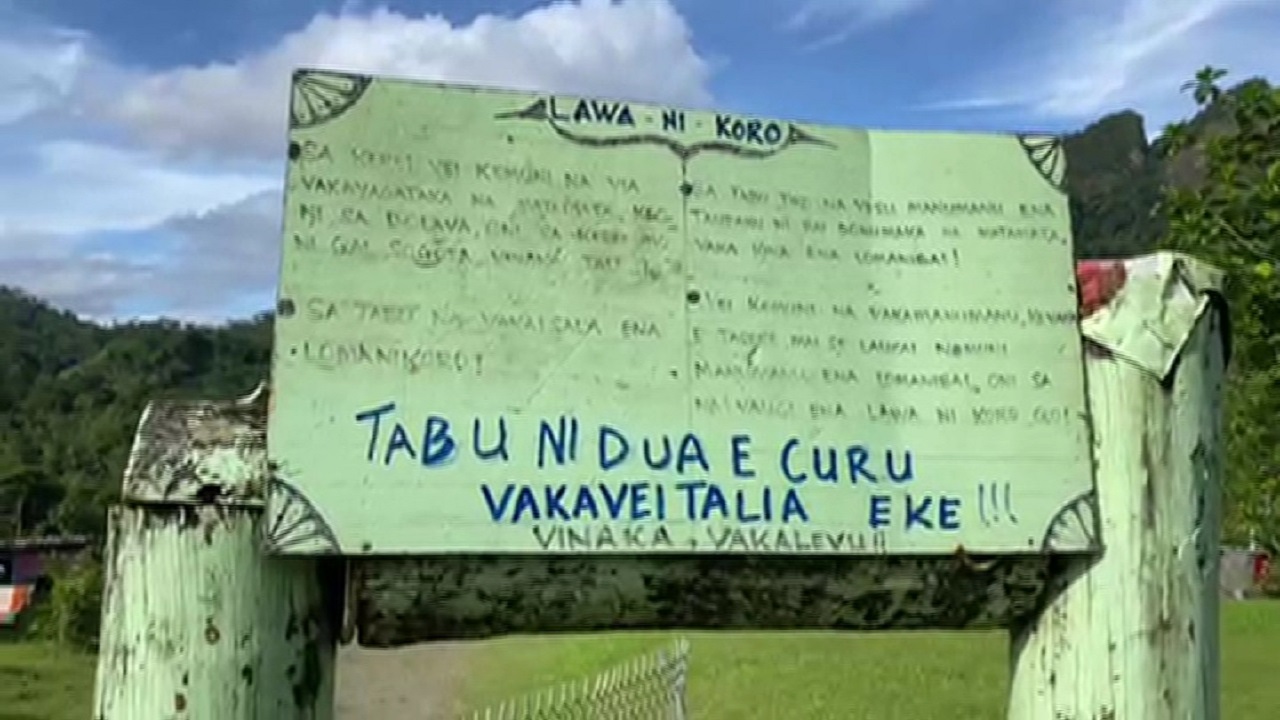 LAWA - NI - KORO
SA KEREI VEI KEMUNI NA VIA
VAKAYAGATAKA NA MATAMATA, KEC-
NI SA DOLAVA, ONI SA KEREI MO
NI GAI SOGOTA VINAKA TALE
SA TABU NA VAKAISALA ENA
LOMANIKORO!
SA TABU NA VESU MANUMANU ENA
TAUDAKU NI BAI BOKUMAKA NA MATAMATA,
VAKA KINA ENA LOMANIBAI!
VEI KEMUNI NA VAKAMANUMANU, KEVAKA
E TADERE MAI SE LAUKAI NOMUNI
MANUMANU ENA LOMANIBAI, ONI SA
NA VAUCI ENA LAWA NI KORO QO!
TABU NI DUA E CURU
VAKAVEITALIA EKE!!!
VINAKA, VAKALEVU!!